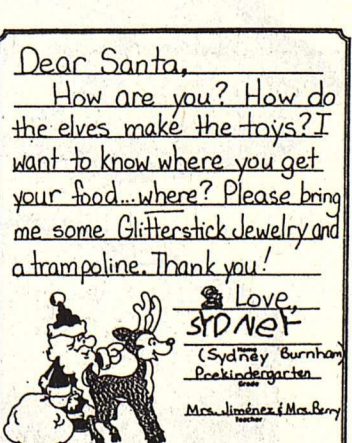 Dear Santa,
How are you? How do
the elves make the toys? I
want to know where you get
your food...where? Please bring
me some Glitterstick Jewelry and
a trampoline. Thank you!
Love,
SYDNEY
Name
(Sydney Burnham)
Prekindergarten
Grade
Mrs. Jiménez & Mrs. Berry
Teacher